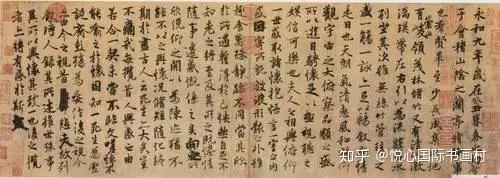 永和九年歲在癸丑暮春之初會
于會稽山陰之蘭亭脩稧事
也羣賢畢至少長咸集此地
有崇山峻領茂林脩竹又有清流激
湍暎帶左右引以為流觴曲水
列坐其次雖無絲竹管弦之
盛一觴一詠亦足以暢敘幽情
是日也天朗氣清惠風和暢仰
觀宇宙之大俯察品類之盛
所以遊目騁懷足以極視聽之
娛信可樂也夫人之相與俯仰
一世或取諸懷抱悟言一室之內
或因寄所託放浪形骸之外雖
趣舍萬殊靜躁不同當其欣
於所遇暫得於己怏然自足不
知老之將至及其所之既惓情
隨事遷感慨係之矣向之所
欣俛仰之閒以為陳迹猶不
能不以之興懷況脩短隨化終
期於盡古人云死生亦大矣豈
不痛哉每攬昔人興感之由
若合一契未嘗不臨文嗟悼不
能喻之於懷固知一死生為虛
誕齊彭殤為妄作後之視今
亦由今之視昔悲夫故列
敘時人錄其所述雖世殊事
異所以興懷其致一也後之攬
者亦將有感於斯文
知乎 @悦心国际书画村